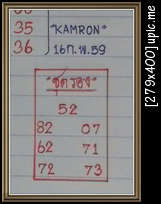 35 "KAMRON"
36 16ก.พ.59
"ชุดรอง"
52
82 07
62 71
72 73
[279x400]upic.me